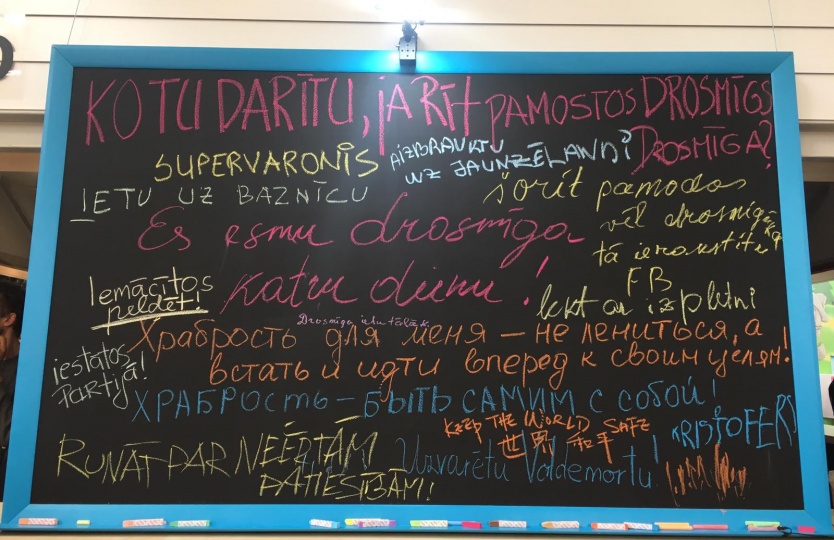 KO TU DARĪTU, JA RĪT PAMOSTOS DROSMĪGS
DROSMĪGA?
SUPERVARONIS
AIZBRAUKTU
UZ JAUNZĒLANDI
IETU UZ BAZNĪCU
šorīt pamodos
vēl drosmīgāka
tā ierakstīti
FB
Es esmu drosmīga
katru dienu!
lēkt ar izpletni
Iemācītos
peldēt!
Drosmīga ietu tālāk
Храбрость для меня – не лениться, а
встать и идти вперед к своим целям!
iestātos
Partijā!
ХРАБРОСТЬ – БЫТЬ САМИМ С СОБОЙ!
KEEP THE WORLD SAFE
世界 和平
KRISTOFERS
RUNĀT PAR NEĒRTĀM
PATIESĪBĀM!
Uzvarētu Voldemortu!